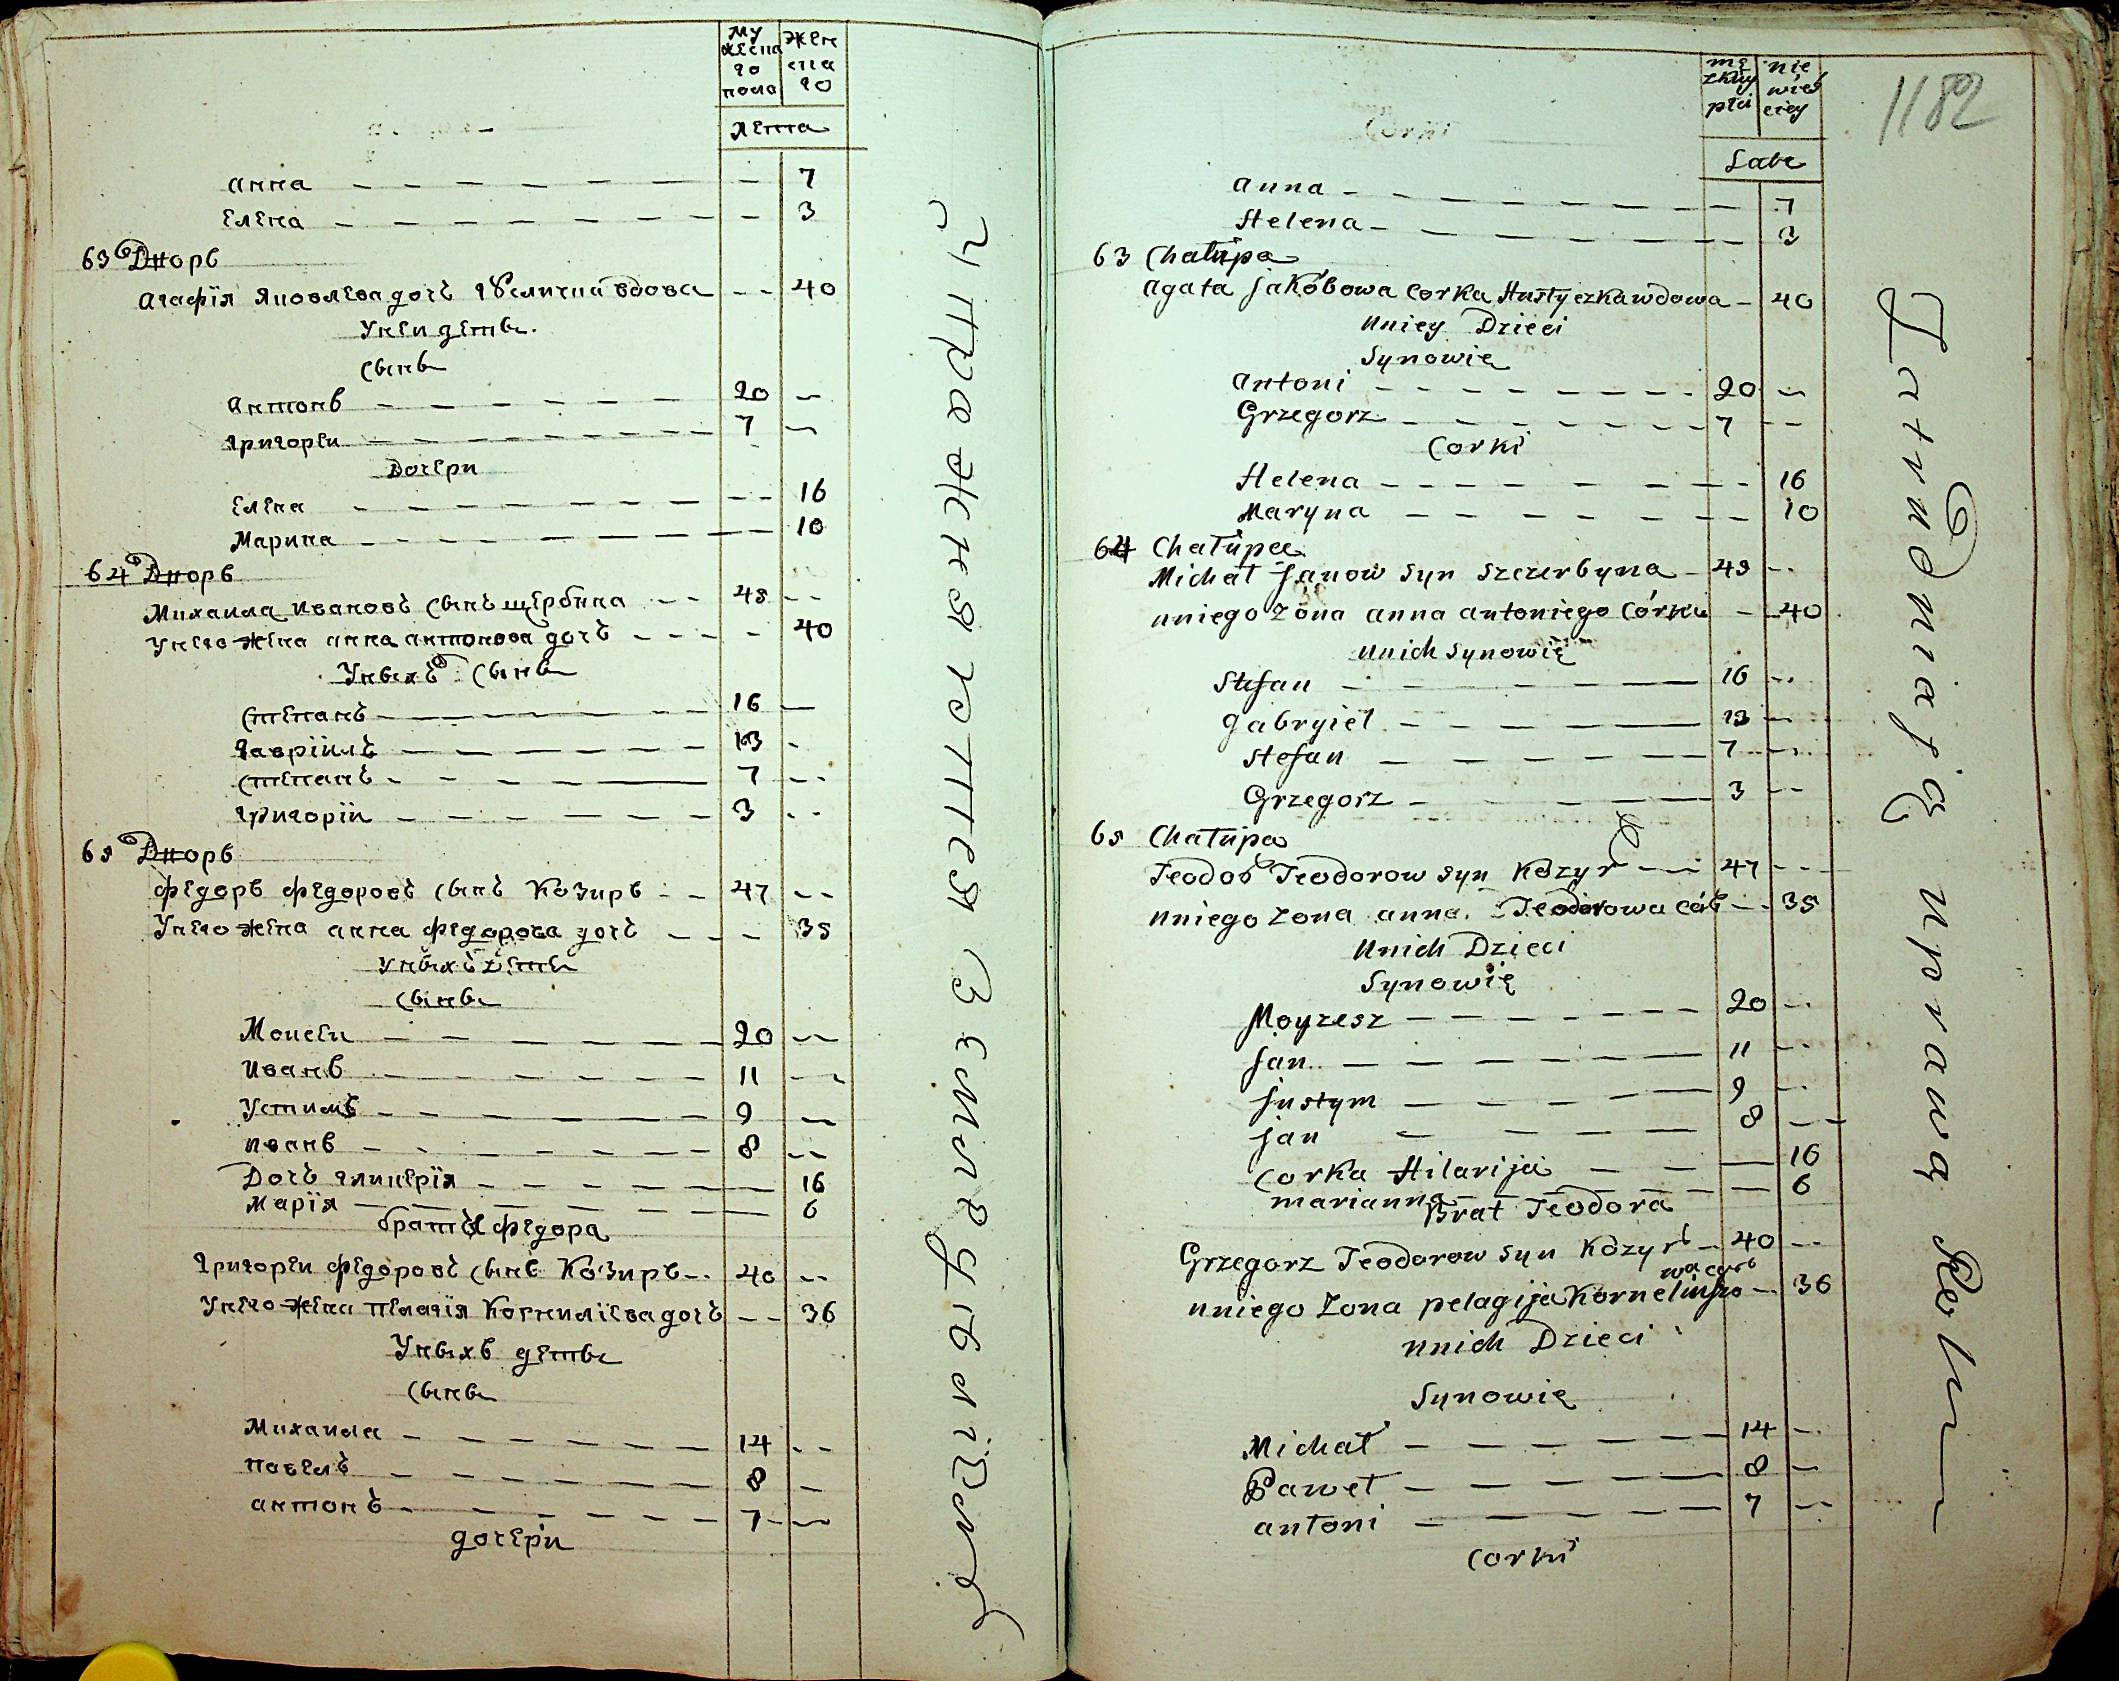 Му
жеска
го
пола
Жен
ска
го
Лета
анна — 7
Елена — 3
63 Дворъ
Агафїя Яковлева дочь Гусличка вдова — 40
У неи дети
Сыны
Антонъ — 20 —
Григореи — 7 —
Дочери
Елена — 16
Марина — 10
64 Дворъ
Михаила Ивановъ сынъ щербина — 48 —
У него жена анна антонова дочь — 40
У ныхъ сыны
Степанъ — 16 —
Гаврїилъ — 13 —
Степанъ — 7 —
Григорїи — 3 —
65 Дворъ
Федоръ Федоровъ сынъ Козиръ — 47 —
У него жена анна Федорова дочь — 35
У ныхъ дети
Сыны
Моисеи — 20 —
Иванъ — 11 —
Устимъ — 9 —
Иванъ — 8 —
Дочь Гликерїя — 16
Марїя — 6
братъ Федора
Григореи Федоровъ сынъ Козиръ — 40 —
У него жена пелагїя Корнилїева дочь — 36
У ныхъ дети
Сыны
Михаила — 14 —
павелъ — 8 —
антонъ — 7 —
дочери
упражняются въ земле
mę
zkiey
płci
nie
wieś
ciey
Late
1182
Corki
anna — 7
Helena — 3
63 Chałupa
agata Jakóbowa corka Hustyczka wdowa — 40
u niey Dzieci
Synowię
antoni — 20 —
Grzegorz — 7 —
Corki
Helena — 16
Maryna — 10
64 Chałupa
Michał Janow Syn Szczerbyna — 48 —
u niego Zona anna antoniego Córka — 40
u nich Synowię
Stefan — 16 —
Gabryiel — 13 —
Stefan — 7 —
Grzegorz — 3 —
65 Chałupa
Teodor Teodorow Syn Kozyr — 47 —
u niego Zona anna Teodorowa cór — 35
u nich Dzieci
Synowię
Moyzesz — 20 —
Jan — 11 —
Justym — 9 —
Jan — 8 —
Corka Hilarija — 16
marianna — 6
Brat Teodora
Grzegorz Teodorow Syn Kozyr — 40 —
u niego Zona pelagija Korneliuszo — 36
wa cor
u nich Dzieci
Synowię
Michał — 14 —
Paweł — 8 —
antoni — 7 —
Corki
Zatrudniają uprawą Rolni